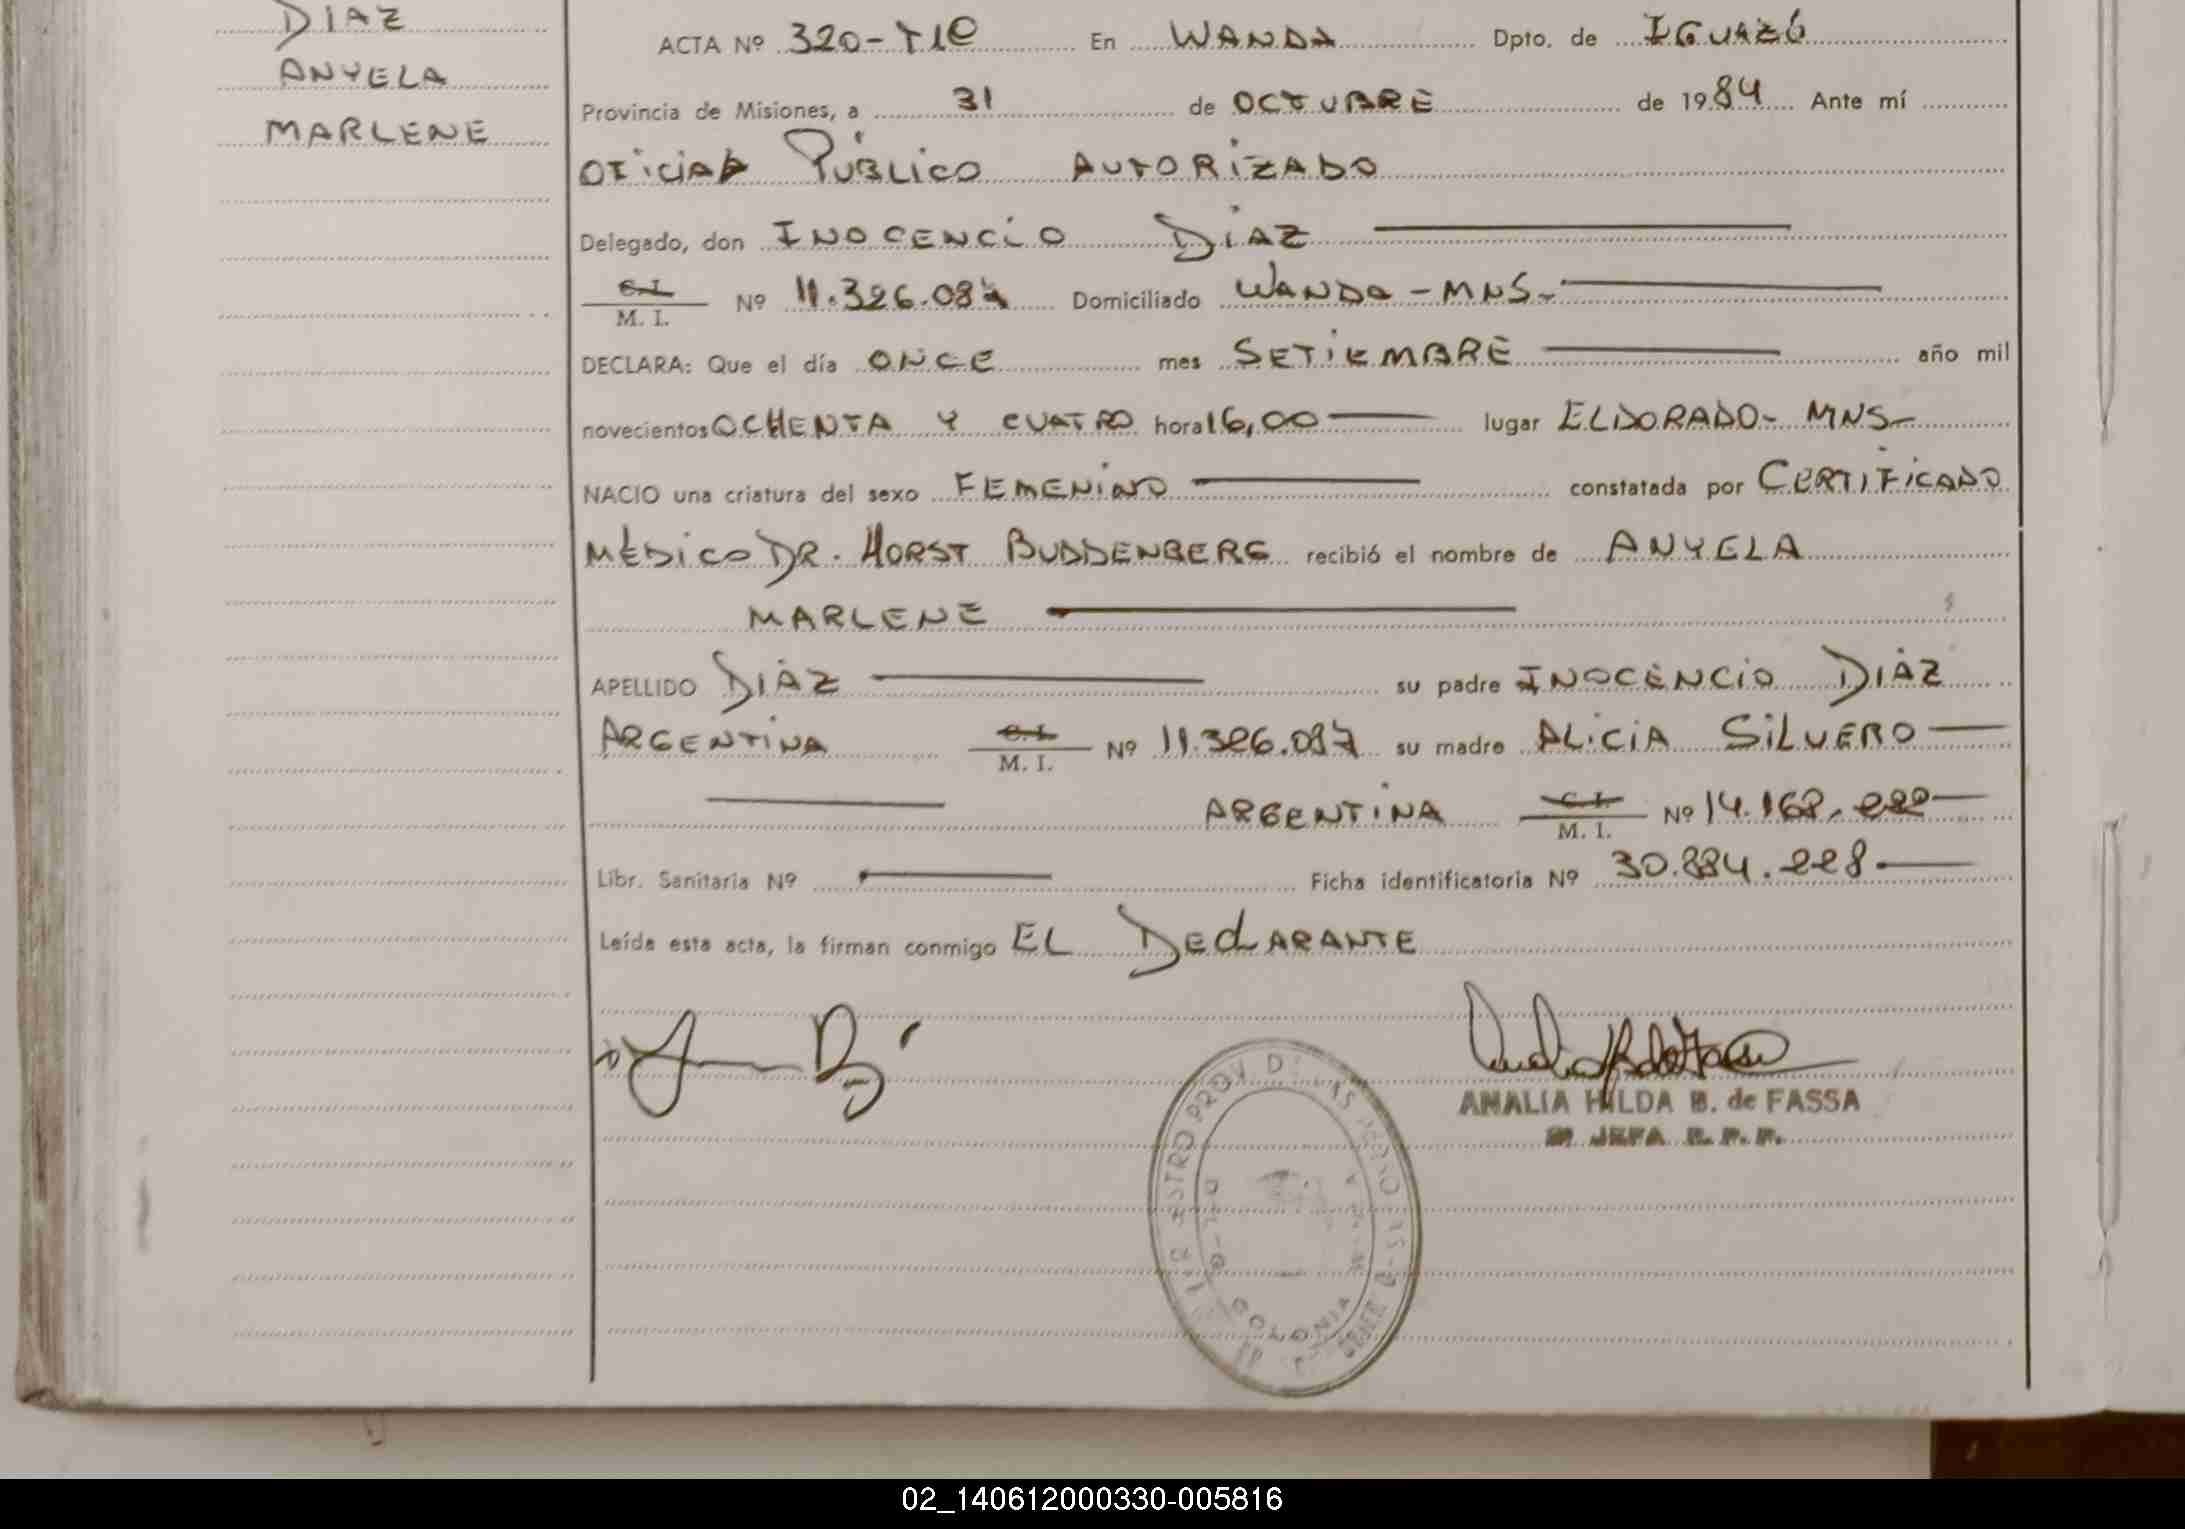 DIAZ
ANYELA
MARLENE
ACTA Nº 320-T1º En WANDA Dpto. de IGUAZÚ
Provincia de Misiones, a 31 de OCTUBRE de 1984 Ante mí
OFICIAL PÚBLICO AUTORIZADO
Delegado, don INOCENCIO DIAZ
C.I. M. I. Nº 11.326.087 Domiciliado WANDA - MNS-
DECLARA: Que el día ONCE mes SETIEMBRE año mil
novecientos OCHENTA Y CUATRO hora 16,00 lugar ELDORADO- MNS-
NACIO una criatura del sexo FEMENINO constatada por CERTIFICADO
MÉDICO DR. HORST BUDDENBERG recibió el nombre de ANYELA
MARLENE
APELLIDO DIAZ su padre INOCENCIO DIAZ
ARGENTINA C.I. M. I. Nº 11.326.087 su madre ALICIA SILVERO
ARGENTINA C.I. M. I. Nº 14.168.220
Libr. Sanitaria Nº Ficha identificatoria Nº 30.884.228
Leída esta acta, la firman conmigo EL DECLARANTE
AMALIA HILDA B. de FASSA
JEFA R. P. P.
COLONIA
02_140612000330-005816